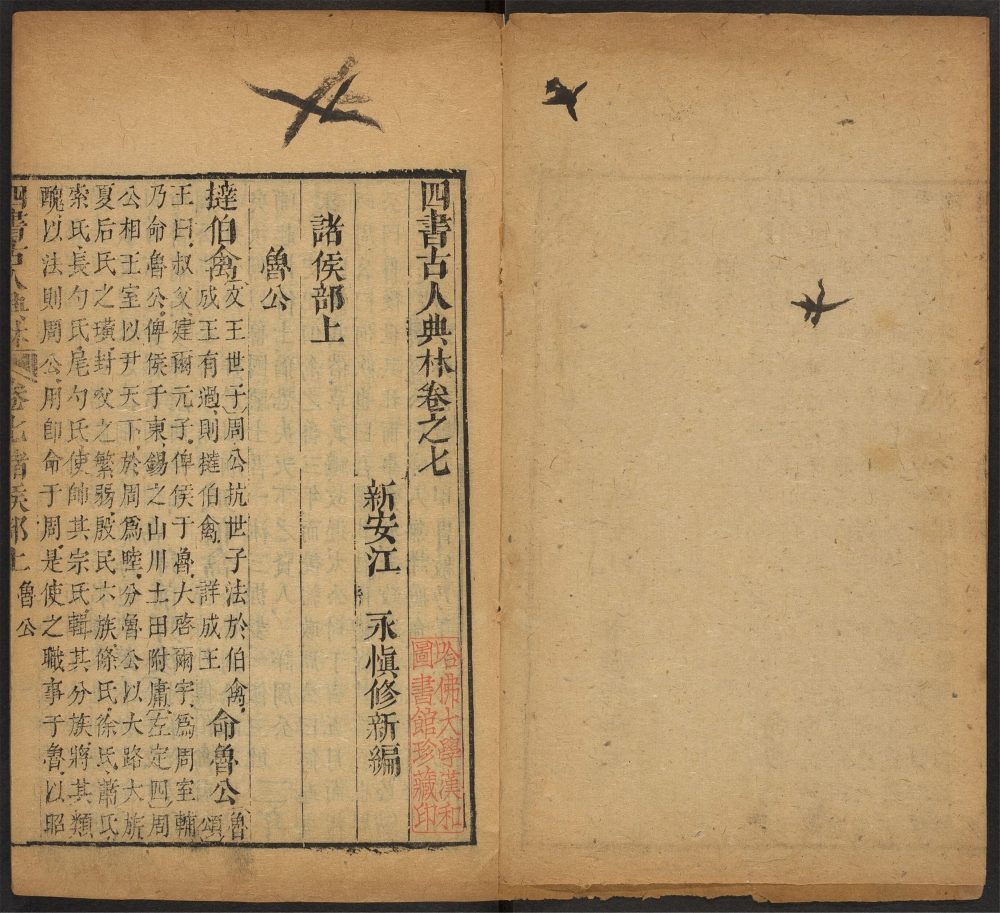 四書古人典林卷之七
新安江　永愼修新編
諸侯部上
魯公
撻伯禽文王世子周公抗世子法於伯禽
成王有過則撻伯禽詳成王
命魯公魯頌
王曰叔父建爾元子俾侯于魯大啓爾宇爲周室輔
乃命魯公俾侯于東錫之山川土田附庸左定四周
公相王室以尹天下於周爲睦分魯公以大路大旂
夏后氏之璜封父之繁弱殷民六族條氏徐氏蕭氏
索氏長勺氏尾勺氏使帥其宗氏輯其分族將其類
醜以法則周公用卽命于周是使之職事于魯以昭
四書古人典林 卷七諸侯部上 魯公
哈佛大學漢和
圖書館珍藏印